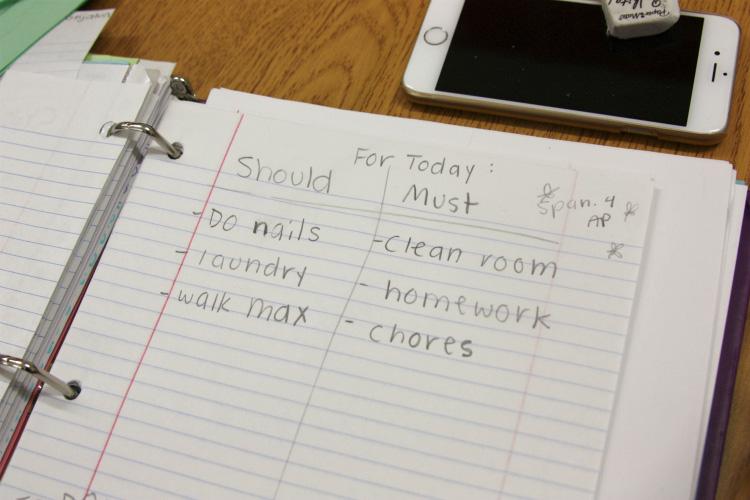 For Today :
Should
Must
Span. 4
AP
- Do nails
- laundry
- walk max
- clean room
- homework
- chores